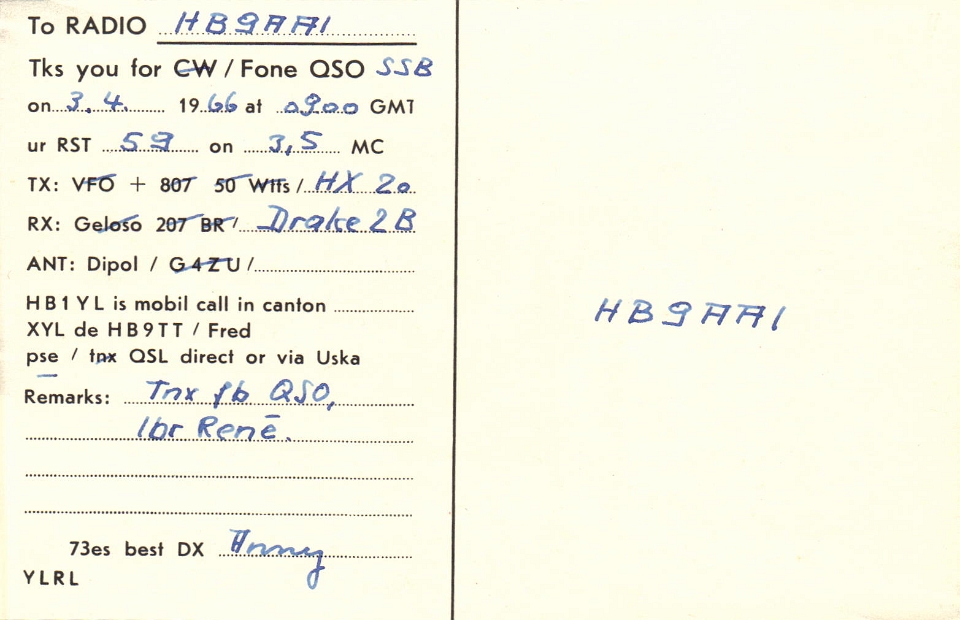 To RADIO HB9AAI
Tks you for CW / Fone QSO SSB
on 3. 4. 1966 at 0900 GMT
ur RST 59 on 3,5 MC
TX: VFO + 807 50 Wtts / HX 20
RX: Geloso 207 BR / Drake 2B
ANT: Dipol / G4ZU /
HB1YL is mobil call in canton
XYL de HB9TT / Fred
pse / tnx QSL direct or via Uska
Remarks: Tnx fb QSO,
lbr René.
73es best DX Anny
YLRL
HB9AAI